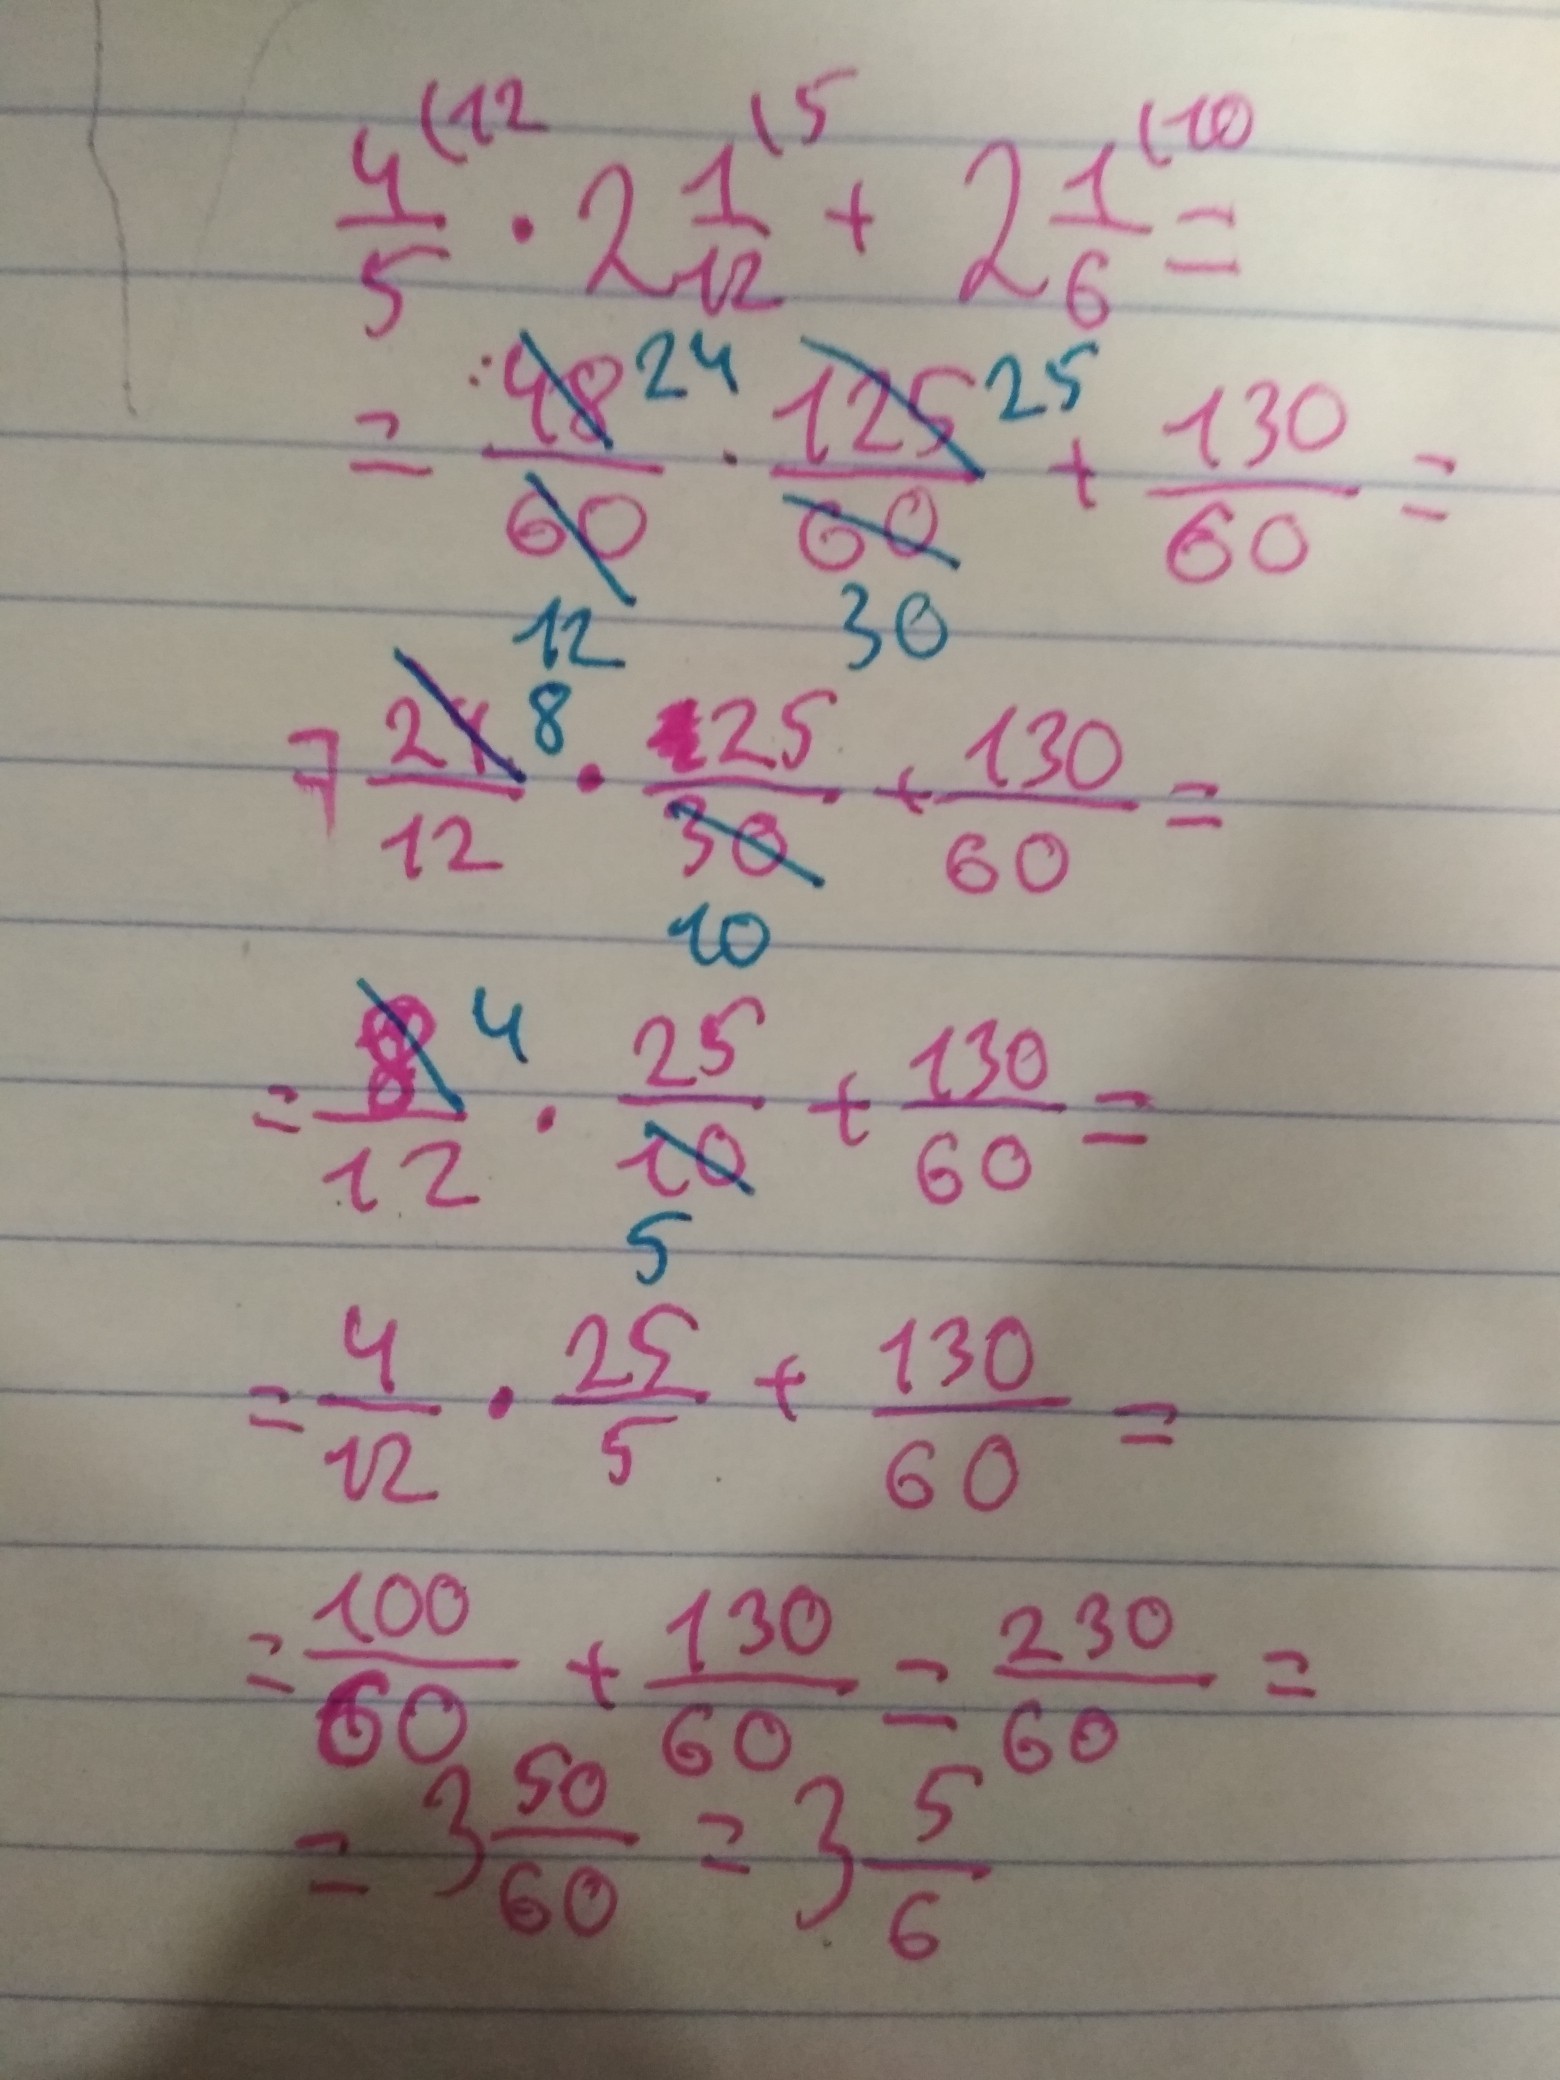 4/5 (12 · 2 1/12 (5 + 2 1/6 (10 =
= 48/60 24 12 · 125/60 25 30 + 130/60 =
= 24/12 8 · 25/30 10 + 130/60 =
= 8/12 4 · 25/10 5 + 130/60 =
= 4/12 · 25/5 + 130/60 =
= 100/60 + 130/60 = 230/60 =
= 3 50/60 = 3 5/6